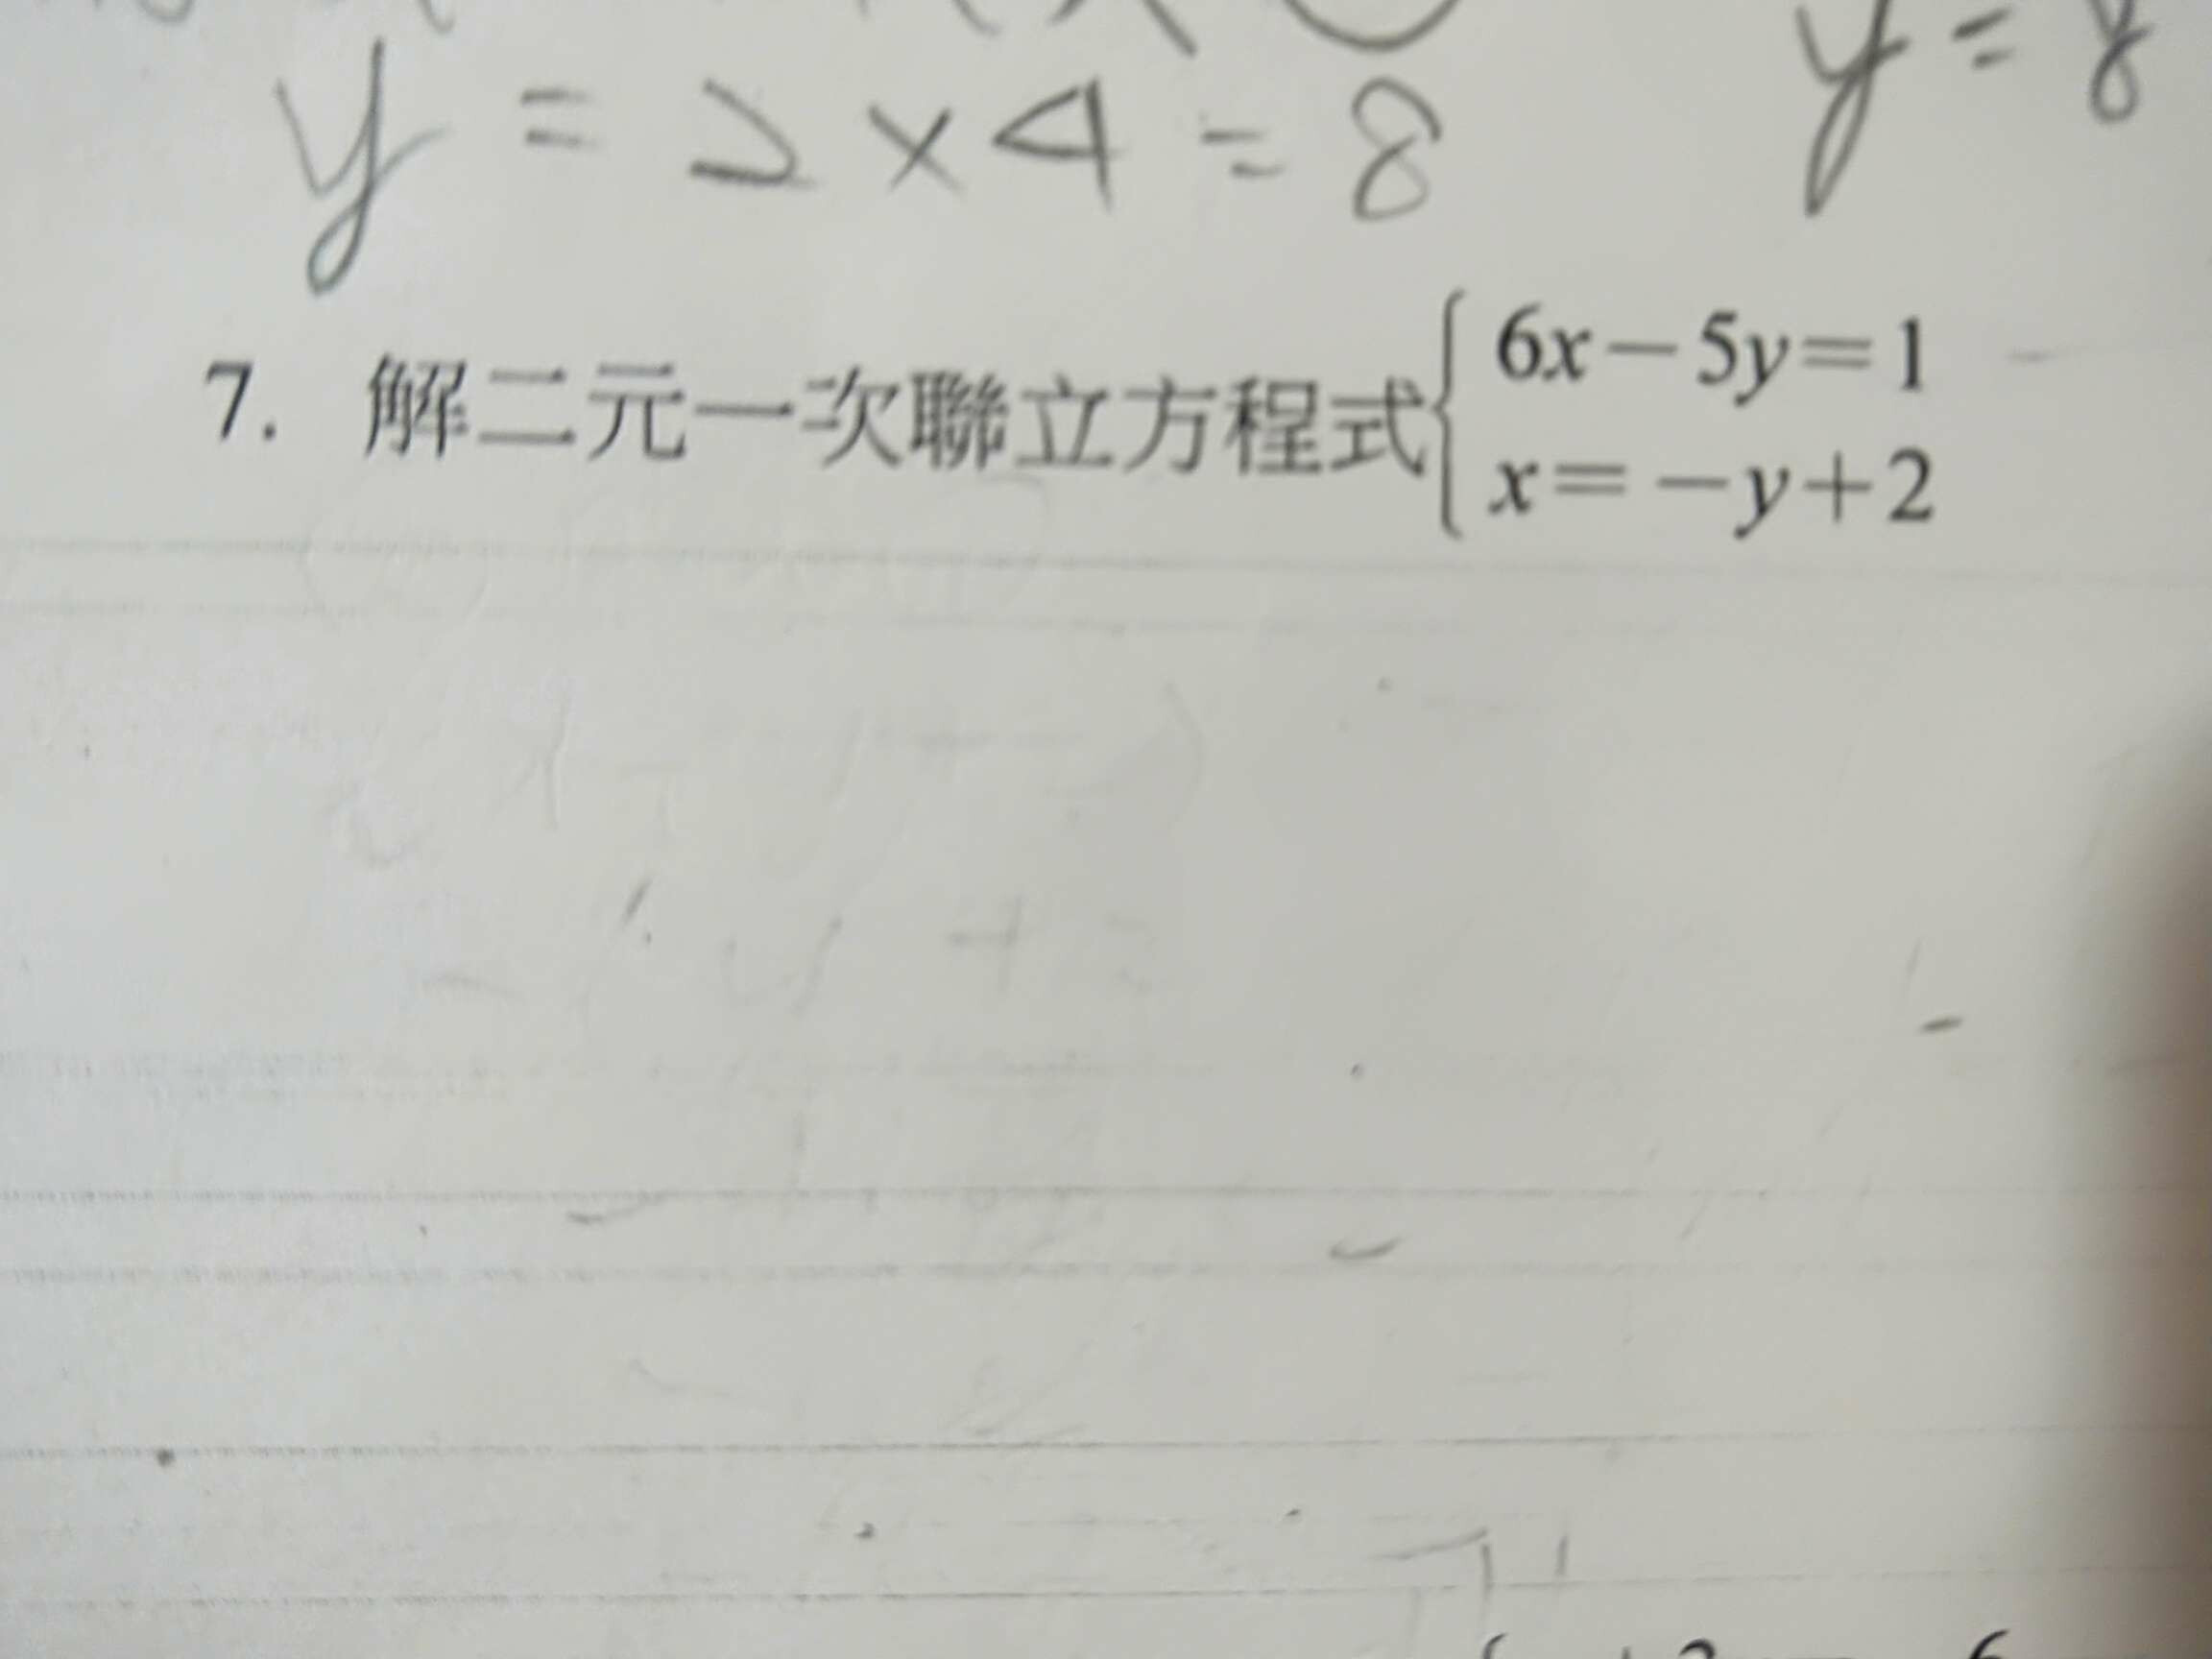 y = 2 × 4 = 8
y = 8
7. 解二元一次聯立方程式{6x－5y＝1
x＝－y＋2